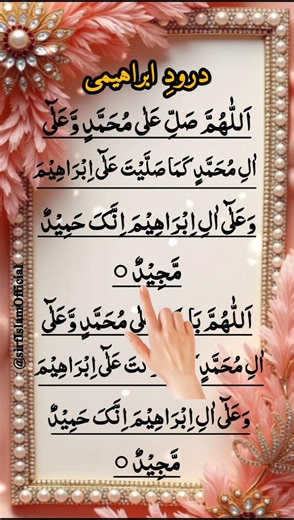 درودِ ابراهیمی
اَللّٰهُمَّ صَلِّ عَلٰی مُحَمَّدٍ وَّعَلٰٓی
اٰلِ مُحَمَّدٍ کَمَا صَلَّیْتَ عَلٰٓی اِبْرَاهِیْمَ
وَعَلٰٓی اٰلِ اِبْرَاهِیْمَ اِنَّکَ حَمِیْدٌ
مَّجِیْدٌ ○
اَللّٰهُمَّ عَلٰی مُحَمَّدٍ وَّعَلٰٓی
اٰلِ مُحَمَّدٍ عَلٰٓی اِبْرَاهِیْمَ
وَعَلٰٓی اٰلِ اِبْرَاهِیْمَ اِنَّکَ حَمِیْدٌ
مَّجِیْدٌ ○
@sirfIslamOfficial